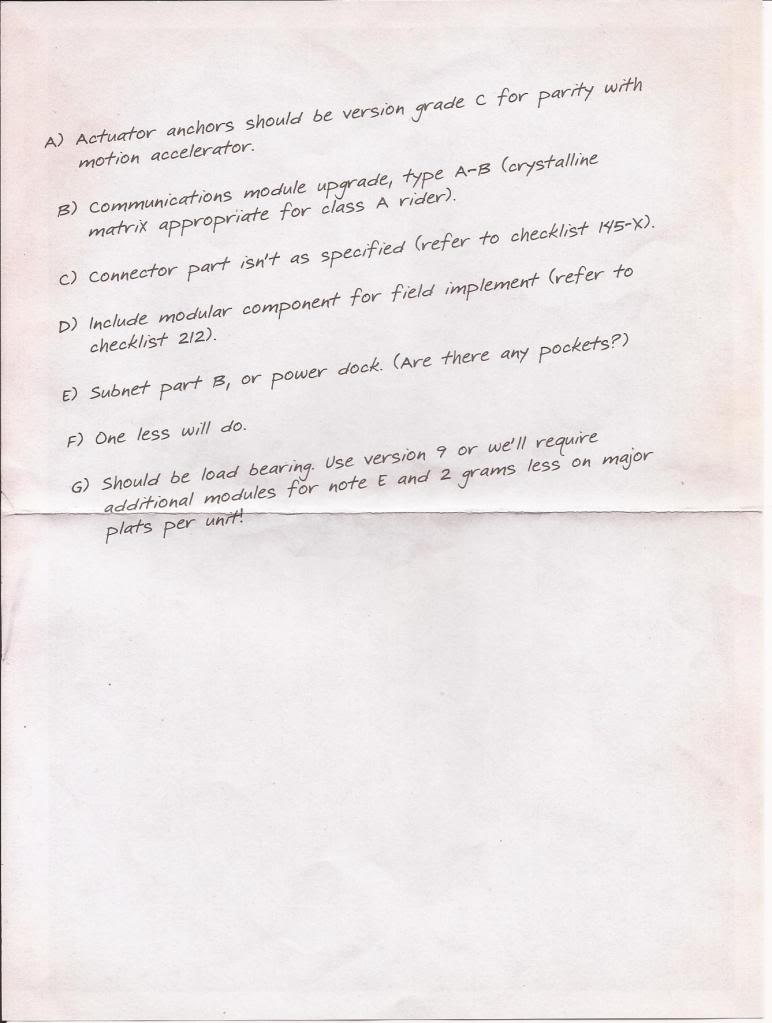 A) Actuator anchors should be version grade C for parity with
motion accelerator.
B) Communications module upgrade, type A-B (crystalline
matrix appropriate for class A rider).
C) Connector part isn't as specified (refer to checklist 145-X).
D) Include modular component for field implement (refer to
checklist 212).
E) Subnet part B, or power dock. (Are there any pockets?)
F) One less will do.
G) Should be load bearing. Use version 9 or we'll require
additional modules for note E and 2 grams less on major
plats per unit!